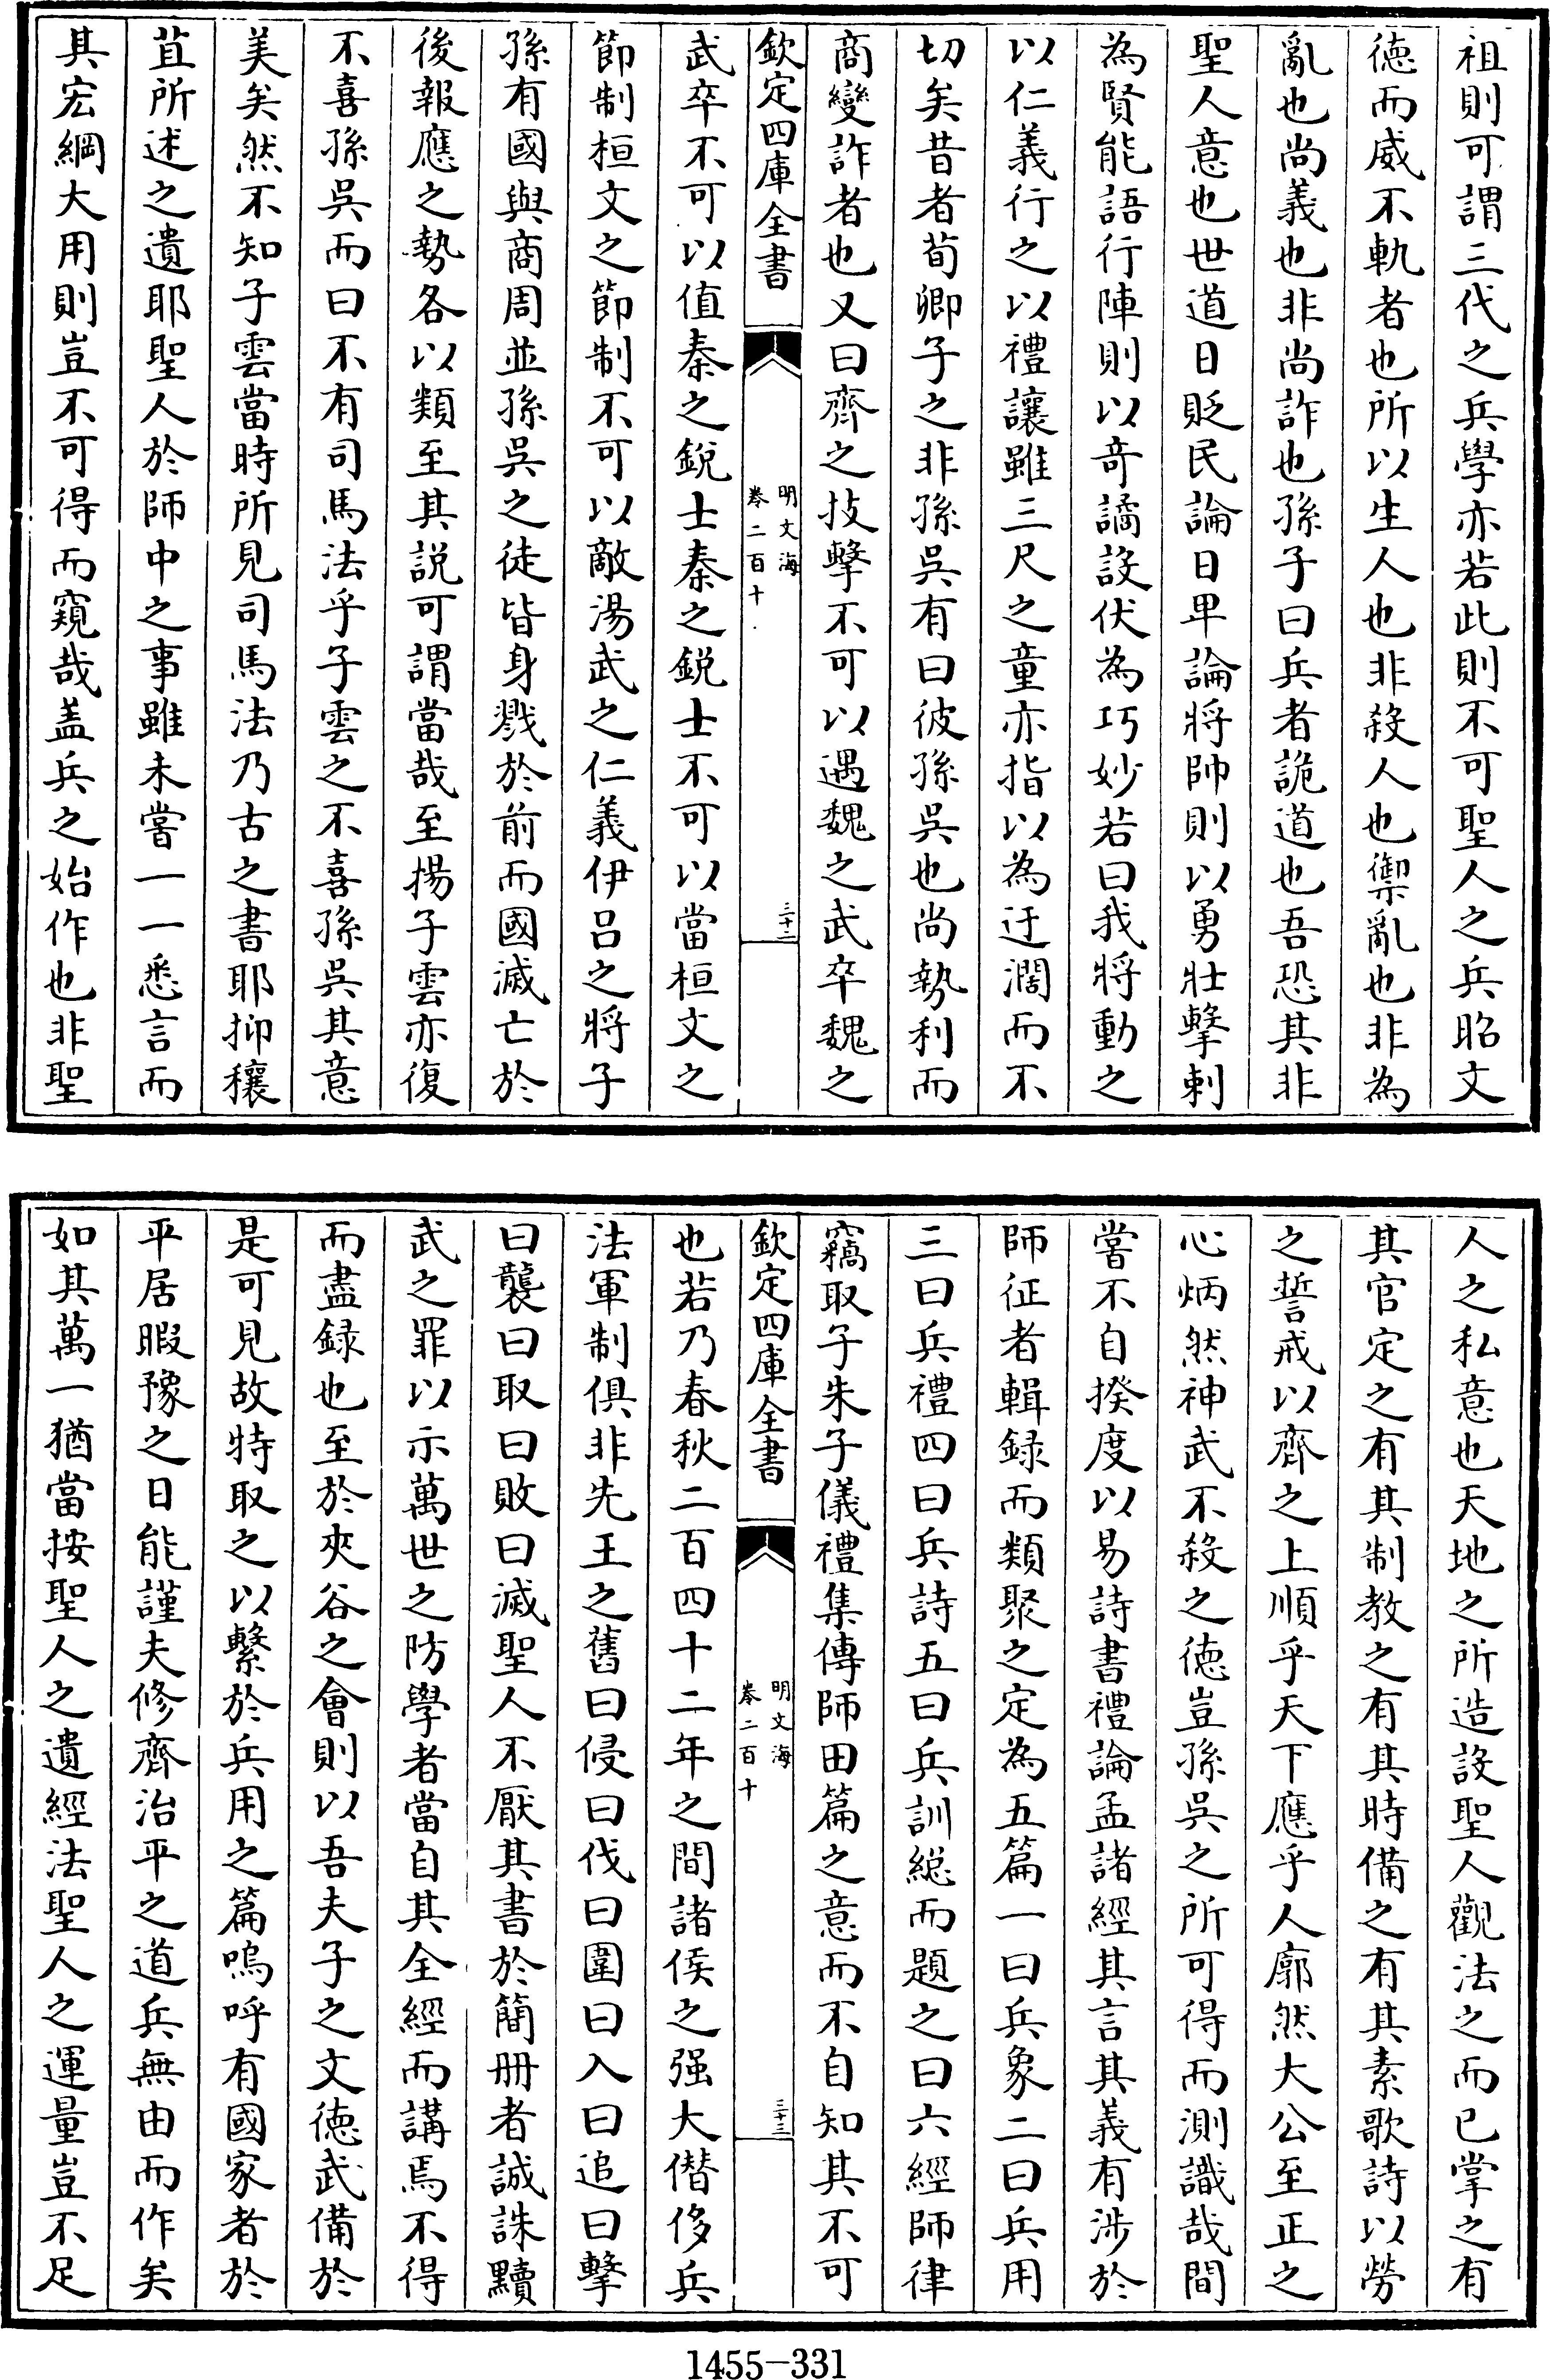 祖則可謂三代之兵學亦若此則不可聖人之兵昭文
徳而威不軌者也所以生人也非殺人也禦亂也非為
亂也尚義也非尚詐也孫子曰兵者詭道也吾恐其非
聖人意也世道日貶民論日卑論將帥則以勇壯擊刺
為賢能語行陣則以奇譎設伏為巧妙若曰我將動之
以仁義行之以禮讓雖三尺之童亦指以為迂濶而不
切矣昔者荀卿子之非孫吳有曰彼孫吳也尚勢利而
商變詐者也又曰齊之技擊不可以遇魏之武卒魏之
欽定四庫全書
明文海
卷二百十
三十二
武卒不可以值秦之銳士秦之銳士不可以當桓文之
節制桓文之節制不可以敵湯武之仁義伊吕之將子
孫有國與商周並孫吳之徒皆身戮於前而國滅亡於
後報應之勢各以類至其説可謂當哉至揚子雲亦復
不喜孫吳而曰不有司馬法乎子雲之不喜孫吳其意
美矣然不知子雲當時所見司馬法乃古之書耶抑穰
苴所述之遺耶聖人於師中之事雖未嘗一一悉言而
其宏綱大用則豈不可得而窺哉盖兵之始作也非聖
人之私意也天地之所造設聖人觀法之而已掌之有
其官定之有其制教之有其時備之有其素歌詩以勞
之誓戒以齊之上順乎天下應乎人廓然大公至正之
心炳然神武不殺之徳豈孫吳之所可得而測識哉間
嘗不自揆度以易詩書禮論孟諸經其言其義有涉於
師征者輯録而類聚之定為五篇一曰兵象二曰兵用
三曰兵禮四曰兵詩五曰兵訓総而題之曰六經師律
竊取子朱子儀禮集傳師田篇之意而不自知其不可
欽定四庫全書
明文海
卷二百十
三十三
也若乃春秋二百四十二年之間諸侯之强大僭侈兵
法軍制俱非先王之舊曰侵曰伐曰圍曰入曰追曰擊
曰襲曰取曰敗曰滅聖人不厭其書於簡册者誠誅黷
武之罪以示萬世之防學者當自其全經而講焉不得
而盡録也至於夾谷之會則以吾夫子之文徳武備於
是可見故特取之以繫於兵用之篇嗚呼有國家者於
平居暇豫之日能謹夫修齊治平之道兵無由而作矣
如其萬一猶當按聖人之遺經法聖人之運量豈不足
1455-331